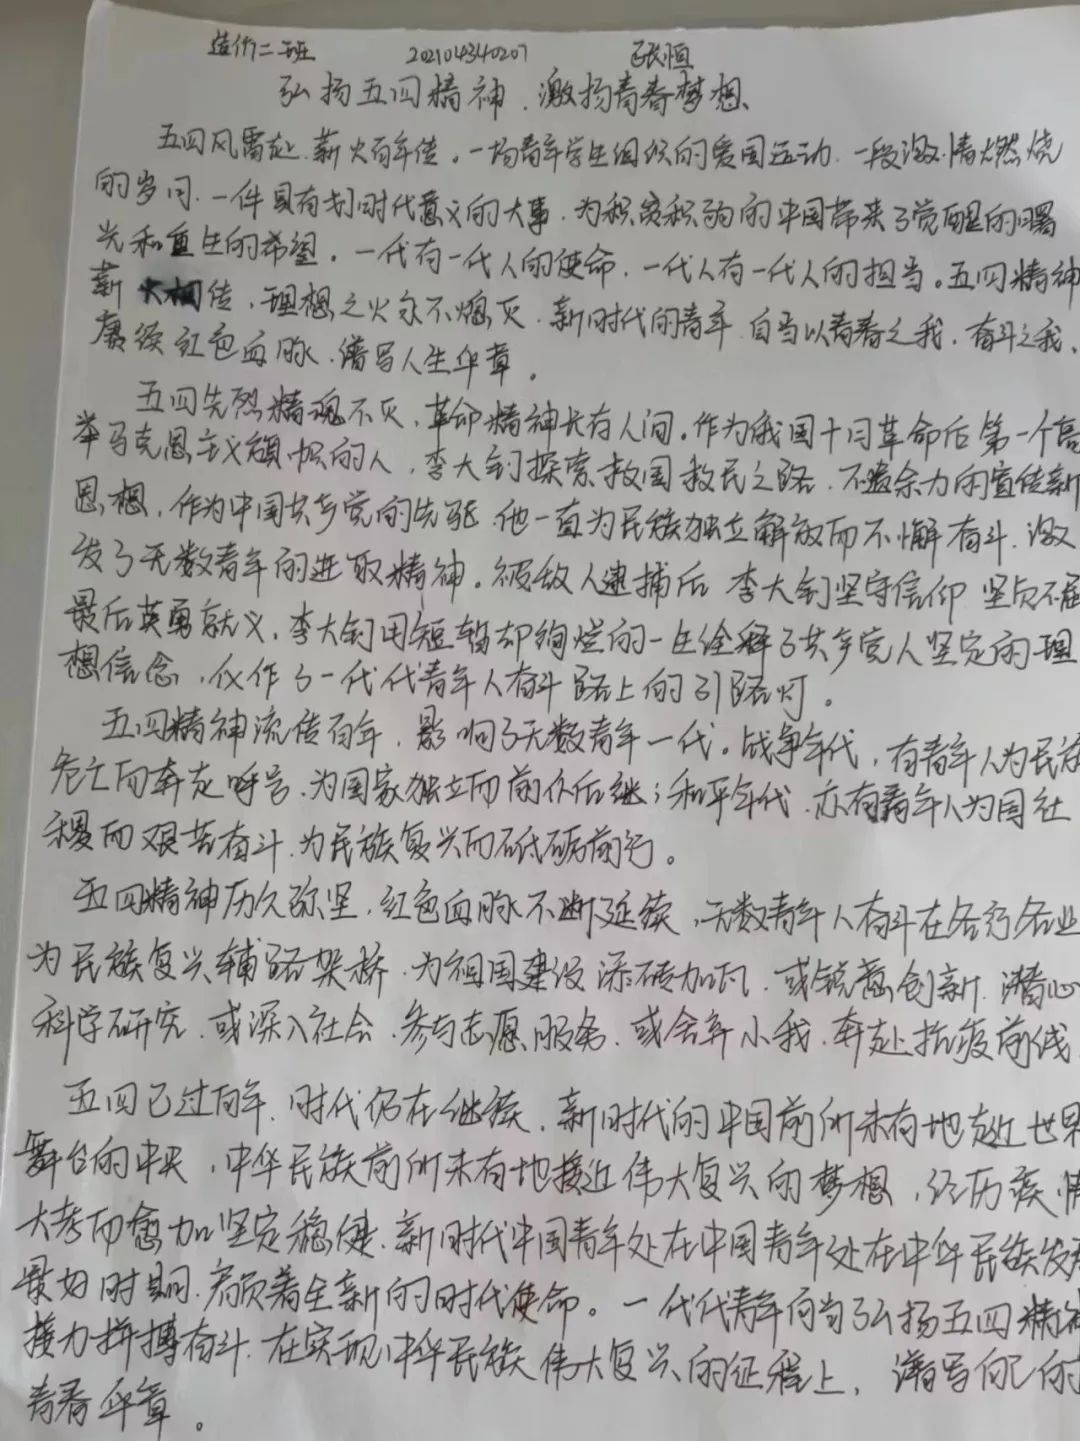 造价二班 202104340207 张恒
弘扬五四精神、激扬青春梦想
五四风雷起、薪火百年传。一场青年学生组织的爱国运动、一段激情燃烧
的岁月、一件具有划时代意义的大事、为积贫积弱的中国带来了觉醒的曙
光和重生的希望。一代有一代人的使命、一代人有一代人的担当。五四精神
薪火相传、理想之火永不熄灭、新时代的青年、自当以青春之我、奋斗之我、
赓续红色血脉、谱写人生华章。
五四先烈精魂不灭、革命精神长存人间。作为我国十月革命后第一个高
举马克思主义旗帜的人，李大钊探索救国救民之路、不遗余力的宣传新
思想，作为中国共产党的先驱、他一直为民族独立解放而不懈奋斗、激
发了无数青年的进取精神。被敌人逮捕后 李大钊坚守信仰 坚贞不屈
最后英勇就义，李大钊用短暂却绚烂的一生诠释了共产党人坚定的理
想信念，化作了一代代青年人奋斗路上的引路灯。
五四精神流传百年，影响了无数青年一代。战争年代，有青年人为民族
危亡而奔走呼号、为国家独立而前仆后继；和平年代、亦有青年人为国社
稷而艰苦奋斗、为民族复兴而砥砺前行。
五四精神历久弥坚，红色血脉不断延续，无数青年人奋斗在各行各业
为民族复兴辅路架桥、为祖国建设添砖加瓦、或锐意创新、潜心
科学研究、或深入社会、参与志愿服务、或舍弃小我、奔赴抗疫前线
五四已过百年、时代仍在继续，新时代的中国前所未有地走近世界
舞台的中央，中华民族前所未有地接近伟大复兴的梦想，经历疫情
大考而愈加坚定稳健、新时代中国青年处在中国青年处在中华民族发展
最好时期、肩负着全新的时代使命。一代代青年向当了弘扬五四精神
接力拼搏奋斗、在实现中华民族伟大复兴的征程上，谱写自己的
青春华章。